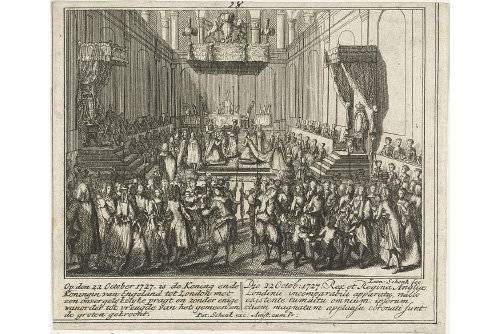 28
Leon. Schenk fec.
Op den 22 October 1727. is de Koning ende
Koningin van Engeland tot London met
een onvergelykelyke pragt en zonder enige
wanordel tot vreugde van het gemeen en
de groten gekroont.
Die 22 Octob: 1727 Rex et Regina Angliæ
Londini incomparabili apparatu, nullo
existente tumultu omnium, ipsorum
etiam magnatum applausu coronati sunt.
Pet. Schenk exc: Amst: cum Pr: